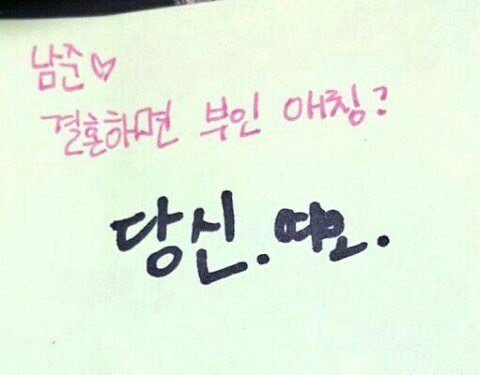 남준♡
결혼하면 부인 애칭?
당신. 여보.